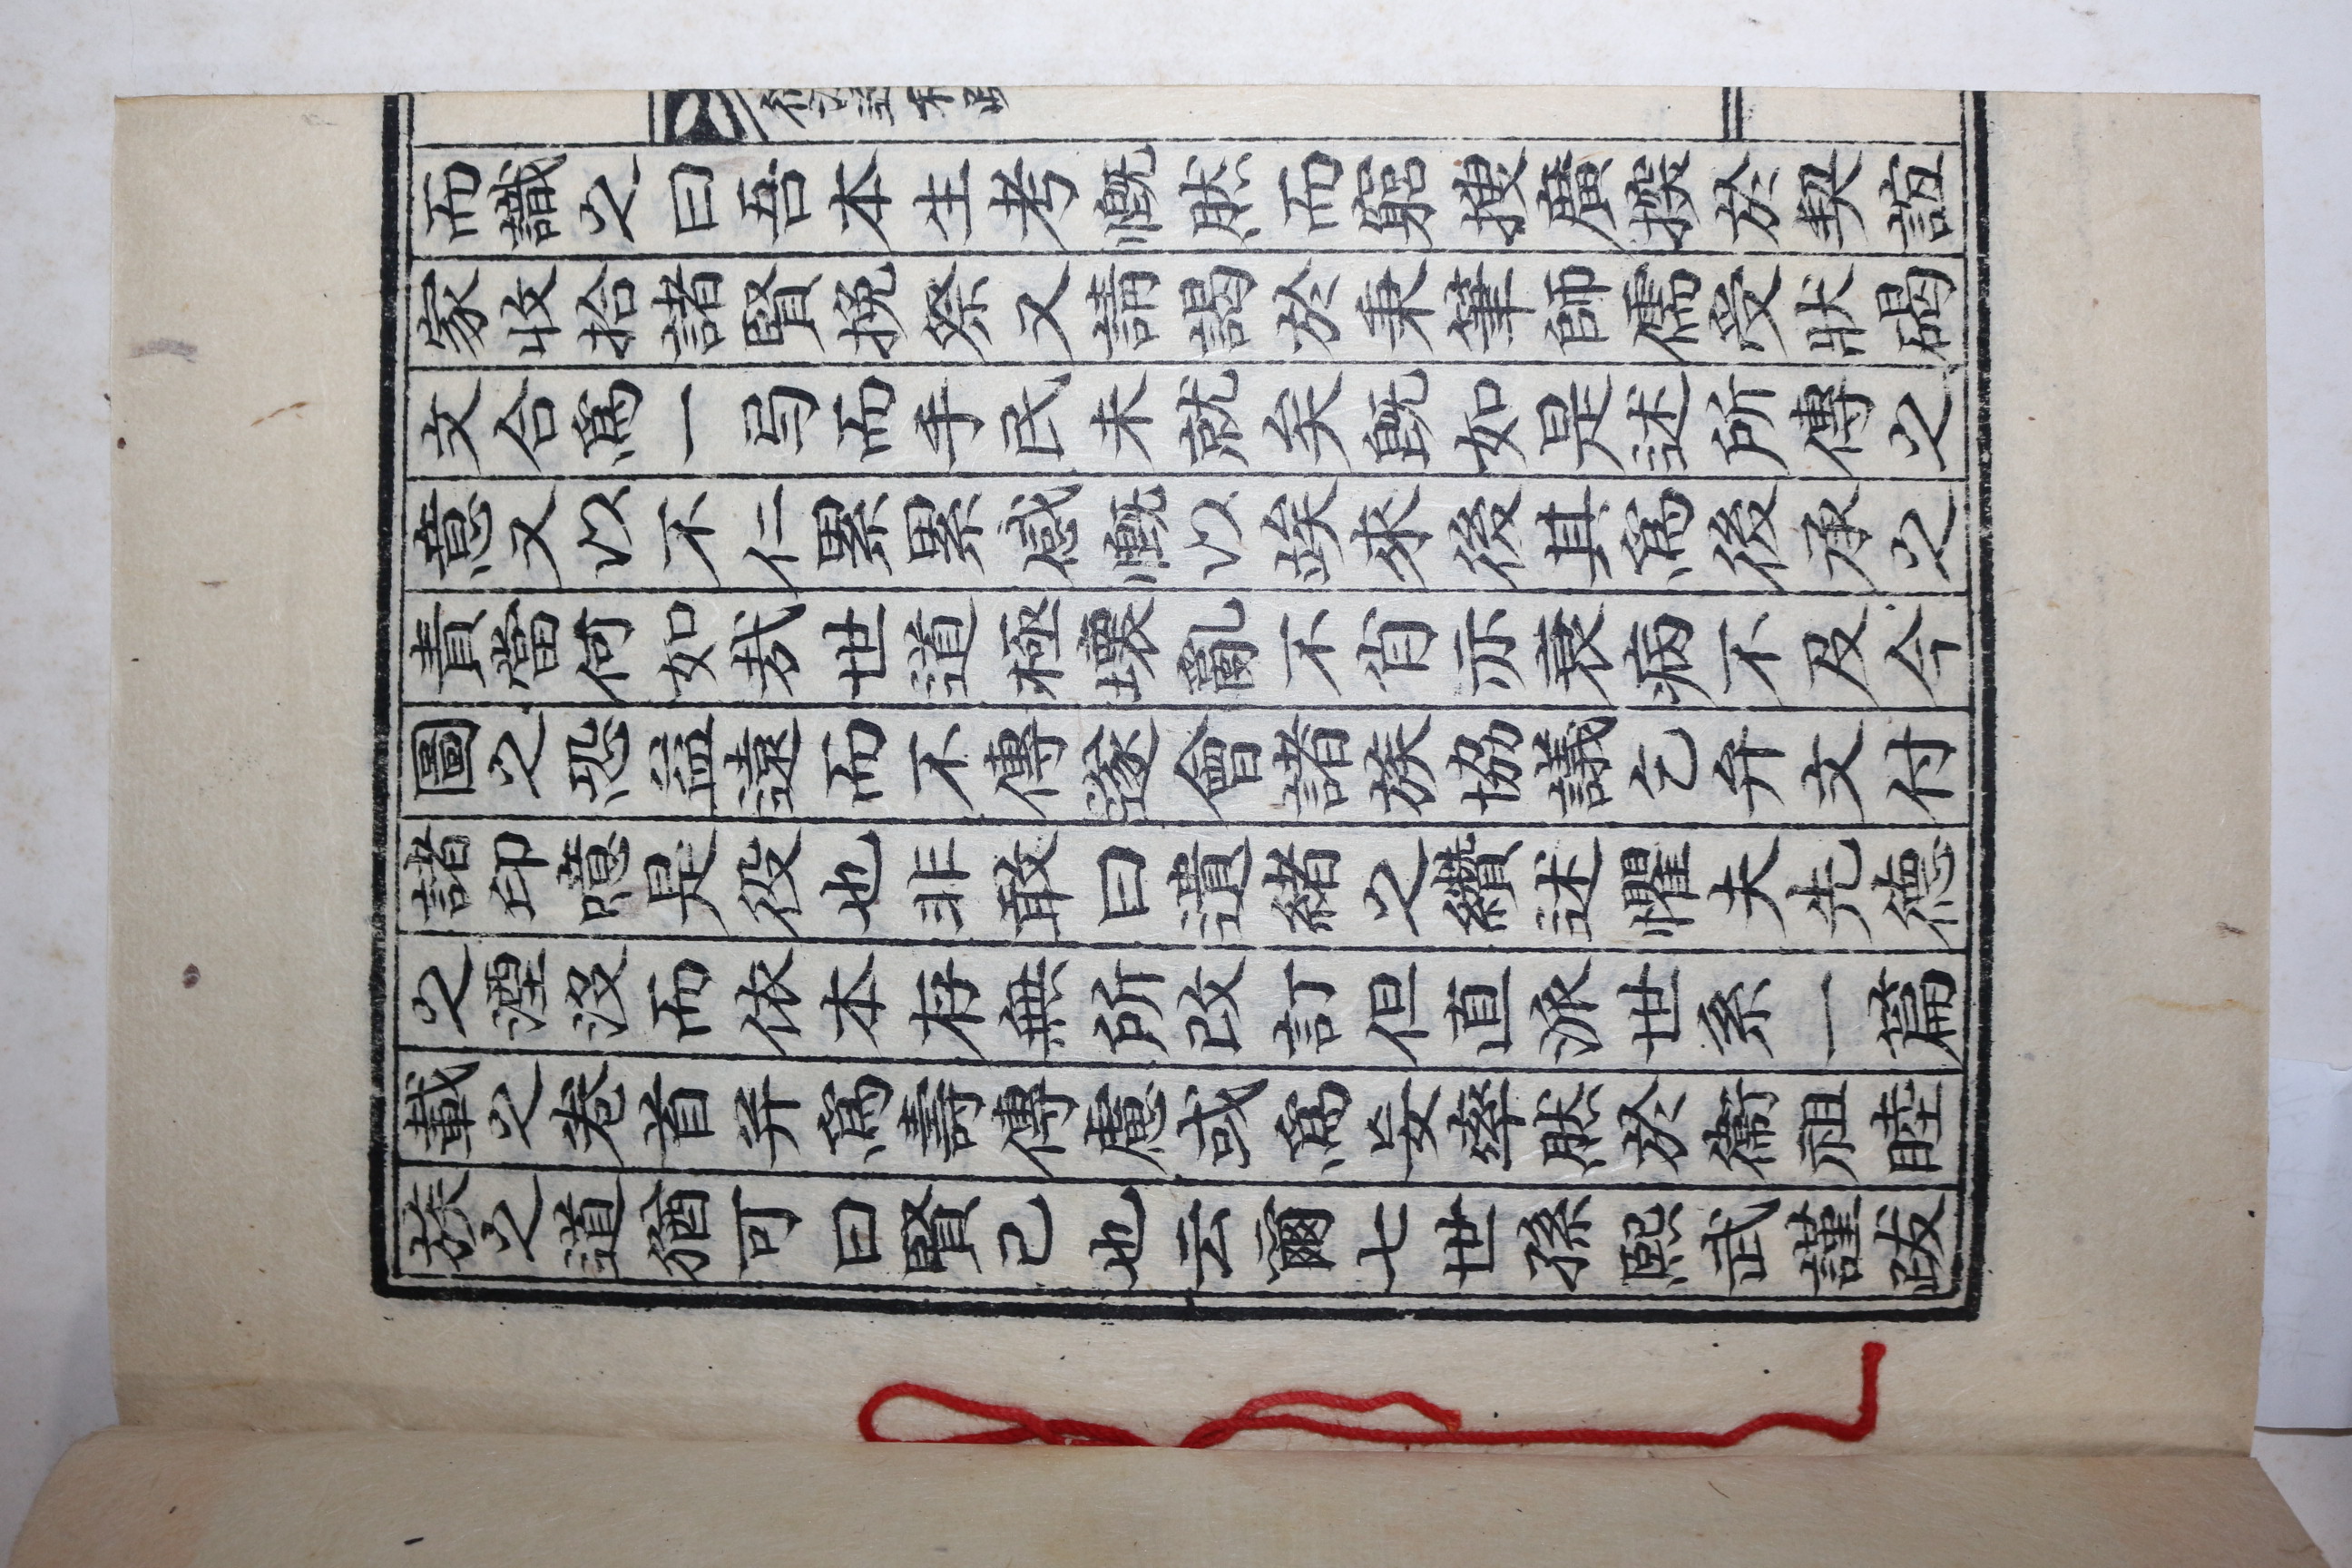 而識之曰吾本生考慨然而窮搜廣撰於契誼
家收拾諸賢挽祭又請謁於秉筆師儒受狀碣
文合爲一弓而手民未就矣旣如是述所傳之
意又以不仁累累感慨以竢來後其爲後承之
責當何如㢤世道極壞亂不肖亦衰病不及今
圖之恐益遠而不傳遂會諸族協議乞弁文付
諸印噫是役也非敢曰遺緖之纘述懼夫先德
之湮沒而依本存無所改訂但直派世系一篇
載之卷首并爲壽傳慮或爲妄率然於衞祖睦
族之道猶可曰賢己也云爾七世孫熙武謹跋